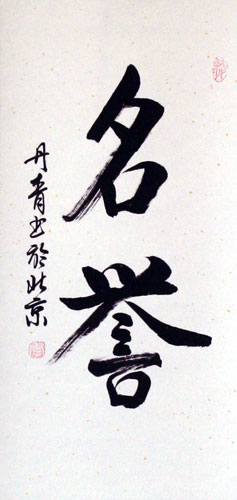 名誉
丹青书於北京